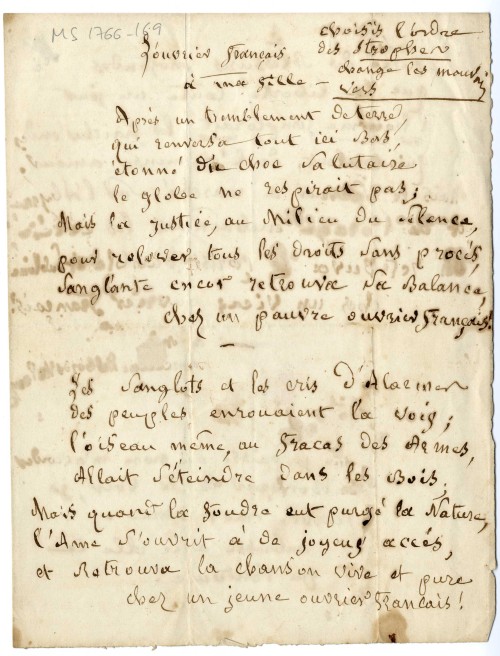 MS 1766-169
choisis l'ordre
des strophes
change les mauvais
vers
L'ouvrier français
à ma fille -
Après un tremblement de terre,
qui renversa tout ici Bas,
étonné du choc salutaire
le globe ne respirait pas ;
Mais la justice, au Milieu du silence,
pour relever tous les droits sans procès,
Sanglante encor retrouva sa Balance,
chez un pauvre ouvrier français !
Les sanglots et les cris d'Alarmes
des peuples enrouaient la voix ;
l'oiseau même, au fracas des Armes,
Allait s'éteindre dans les Bois ;
Mais quand la foudre eut purgé la Nature,
l'Ame s'ouvrit à de joyeux accès,
et Retrouva la chanson vive et pure
chez un jeune ouvrier français !